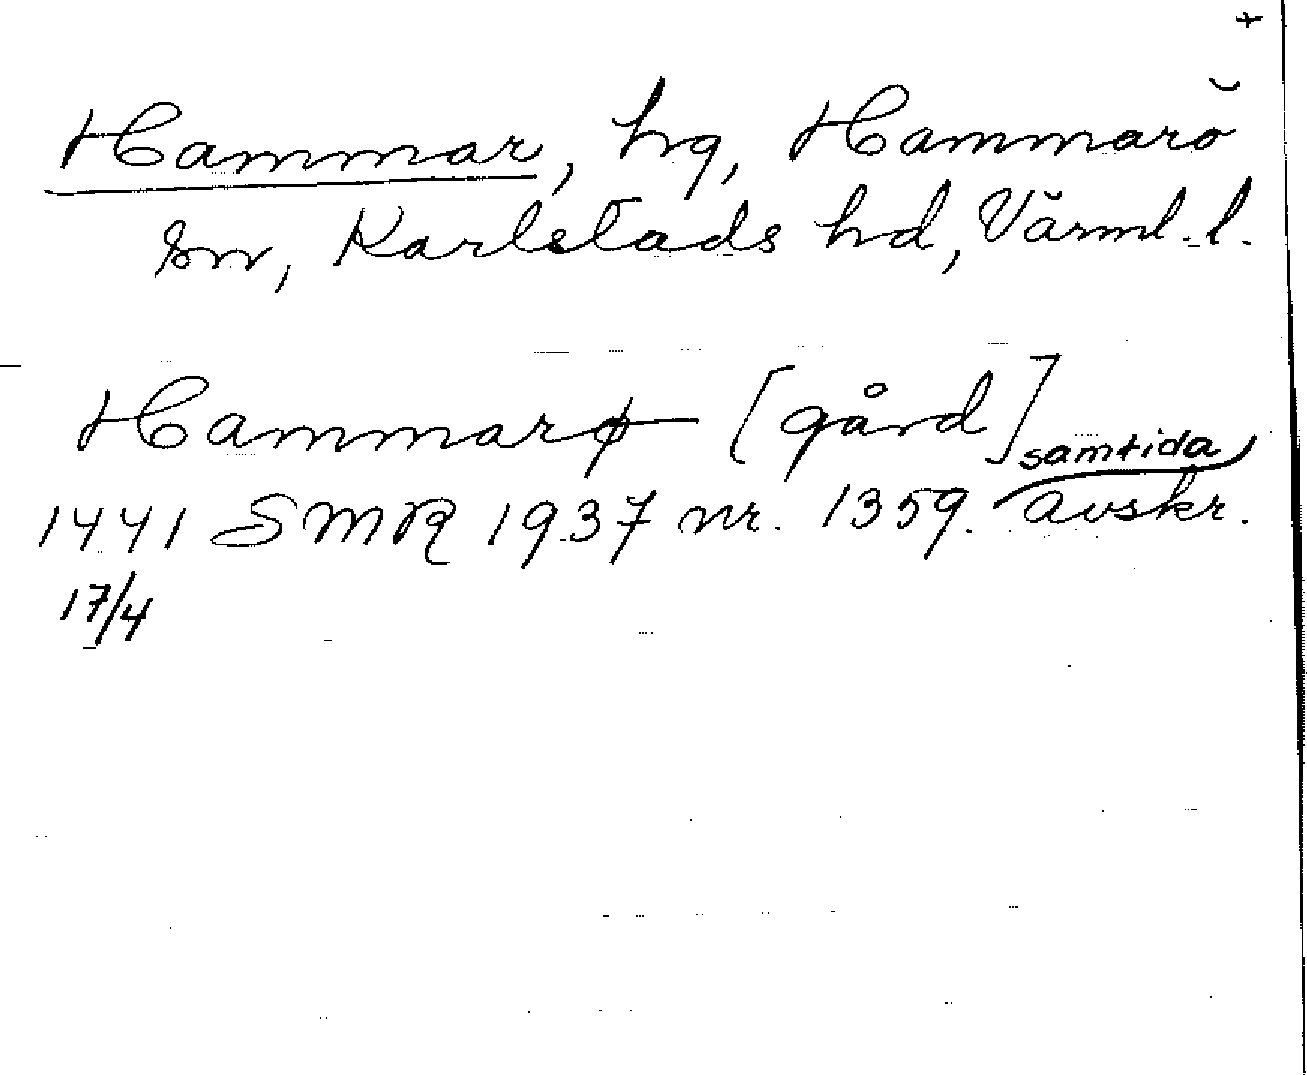 +
Hammar, hg, Hammarö
sn, Karlstads hd, Värml. l.
Hammarø [gård]
samtida
1441 SMR 1937 nr. 1359. avskr.
17/4